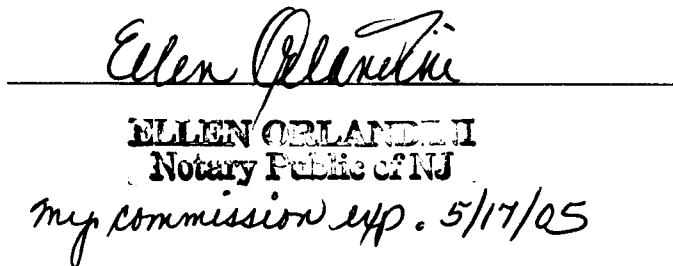 Ellen Orlandini
ELLEN ORLANDINI
Notary Public of NJ
my commission exp. 5/17/05